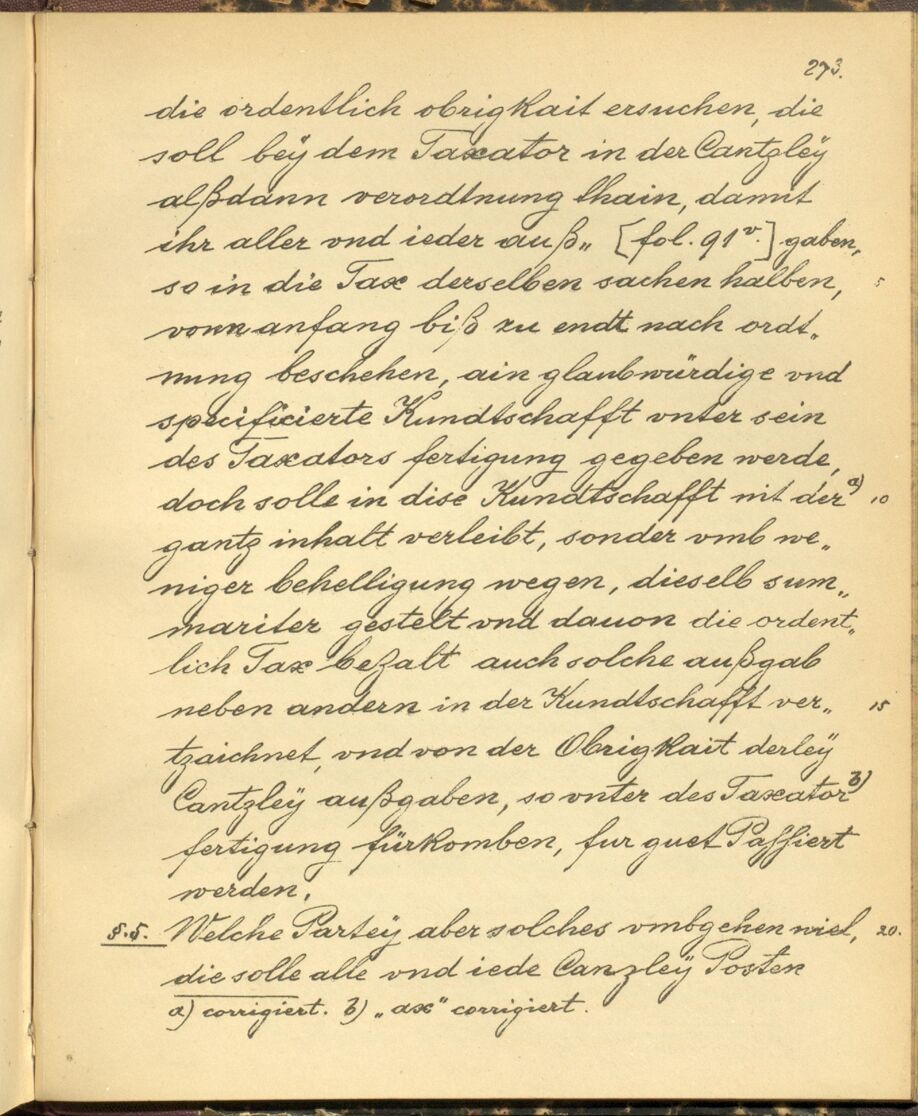 273.
die ordentlich obrigkait ersuchen, die
soll beÿ dem Taxator in der Cantzleÿ
alßdann verordtnung thain, damit
ihr aller vnd ieder auß„ [fol. 91v.] gaben,
so in die Tax derselben sachen halben, 5
vonn anfang biß zu endt nach ordt„
nung beschehen, ain glaubwürdige vnd
specificierte Kundtschafft vnter sein
des Taxators fertigung gegeben werde,
doch solle in dise Kundtschafft nit der a) 10
gantz inhalt verleibt, sonder vmb we„
niger behelligung wegen, dieselb sum„
mariter gestelt vnd dauon die ordent„
lich Tax bezalt auch solche außgab
neben andern in der Kundtschafft ver„ 15
tzaichnet, vnd von der Obrigkait derleÿ
Cantzleÿ außgaben, so vnter des Taxator b)
fertigung fürkomben, fur guet Passiert
werden.
§.5. Welche Parteÿ aber solches vmbgehen wiel, 20.
die solle alle vnd iede Canzleÿ Posten
a) corrigiert. b) „ax" corrigiert.